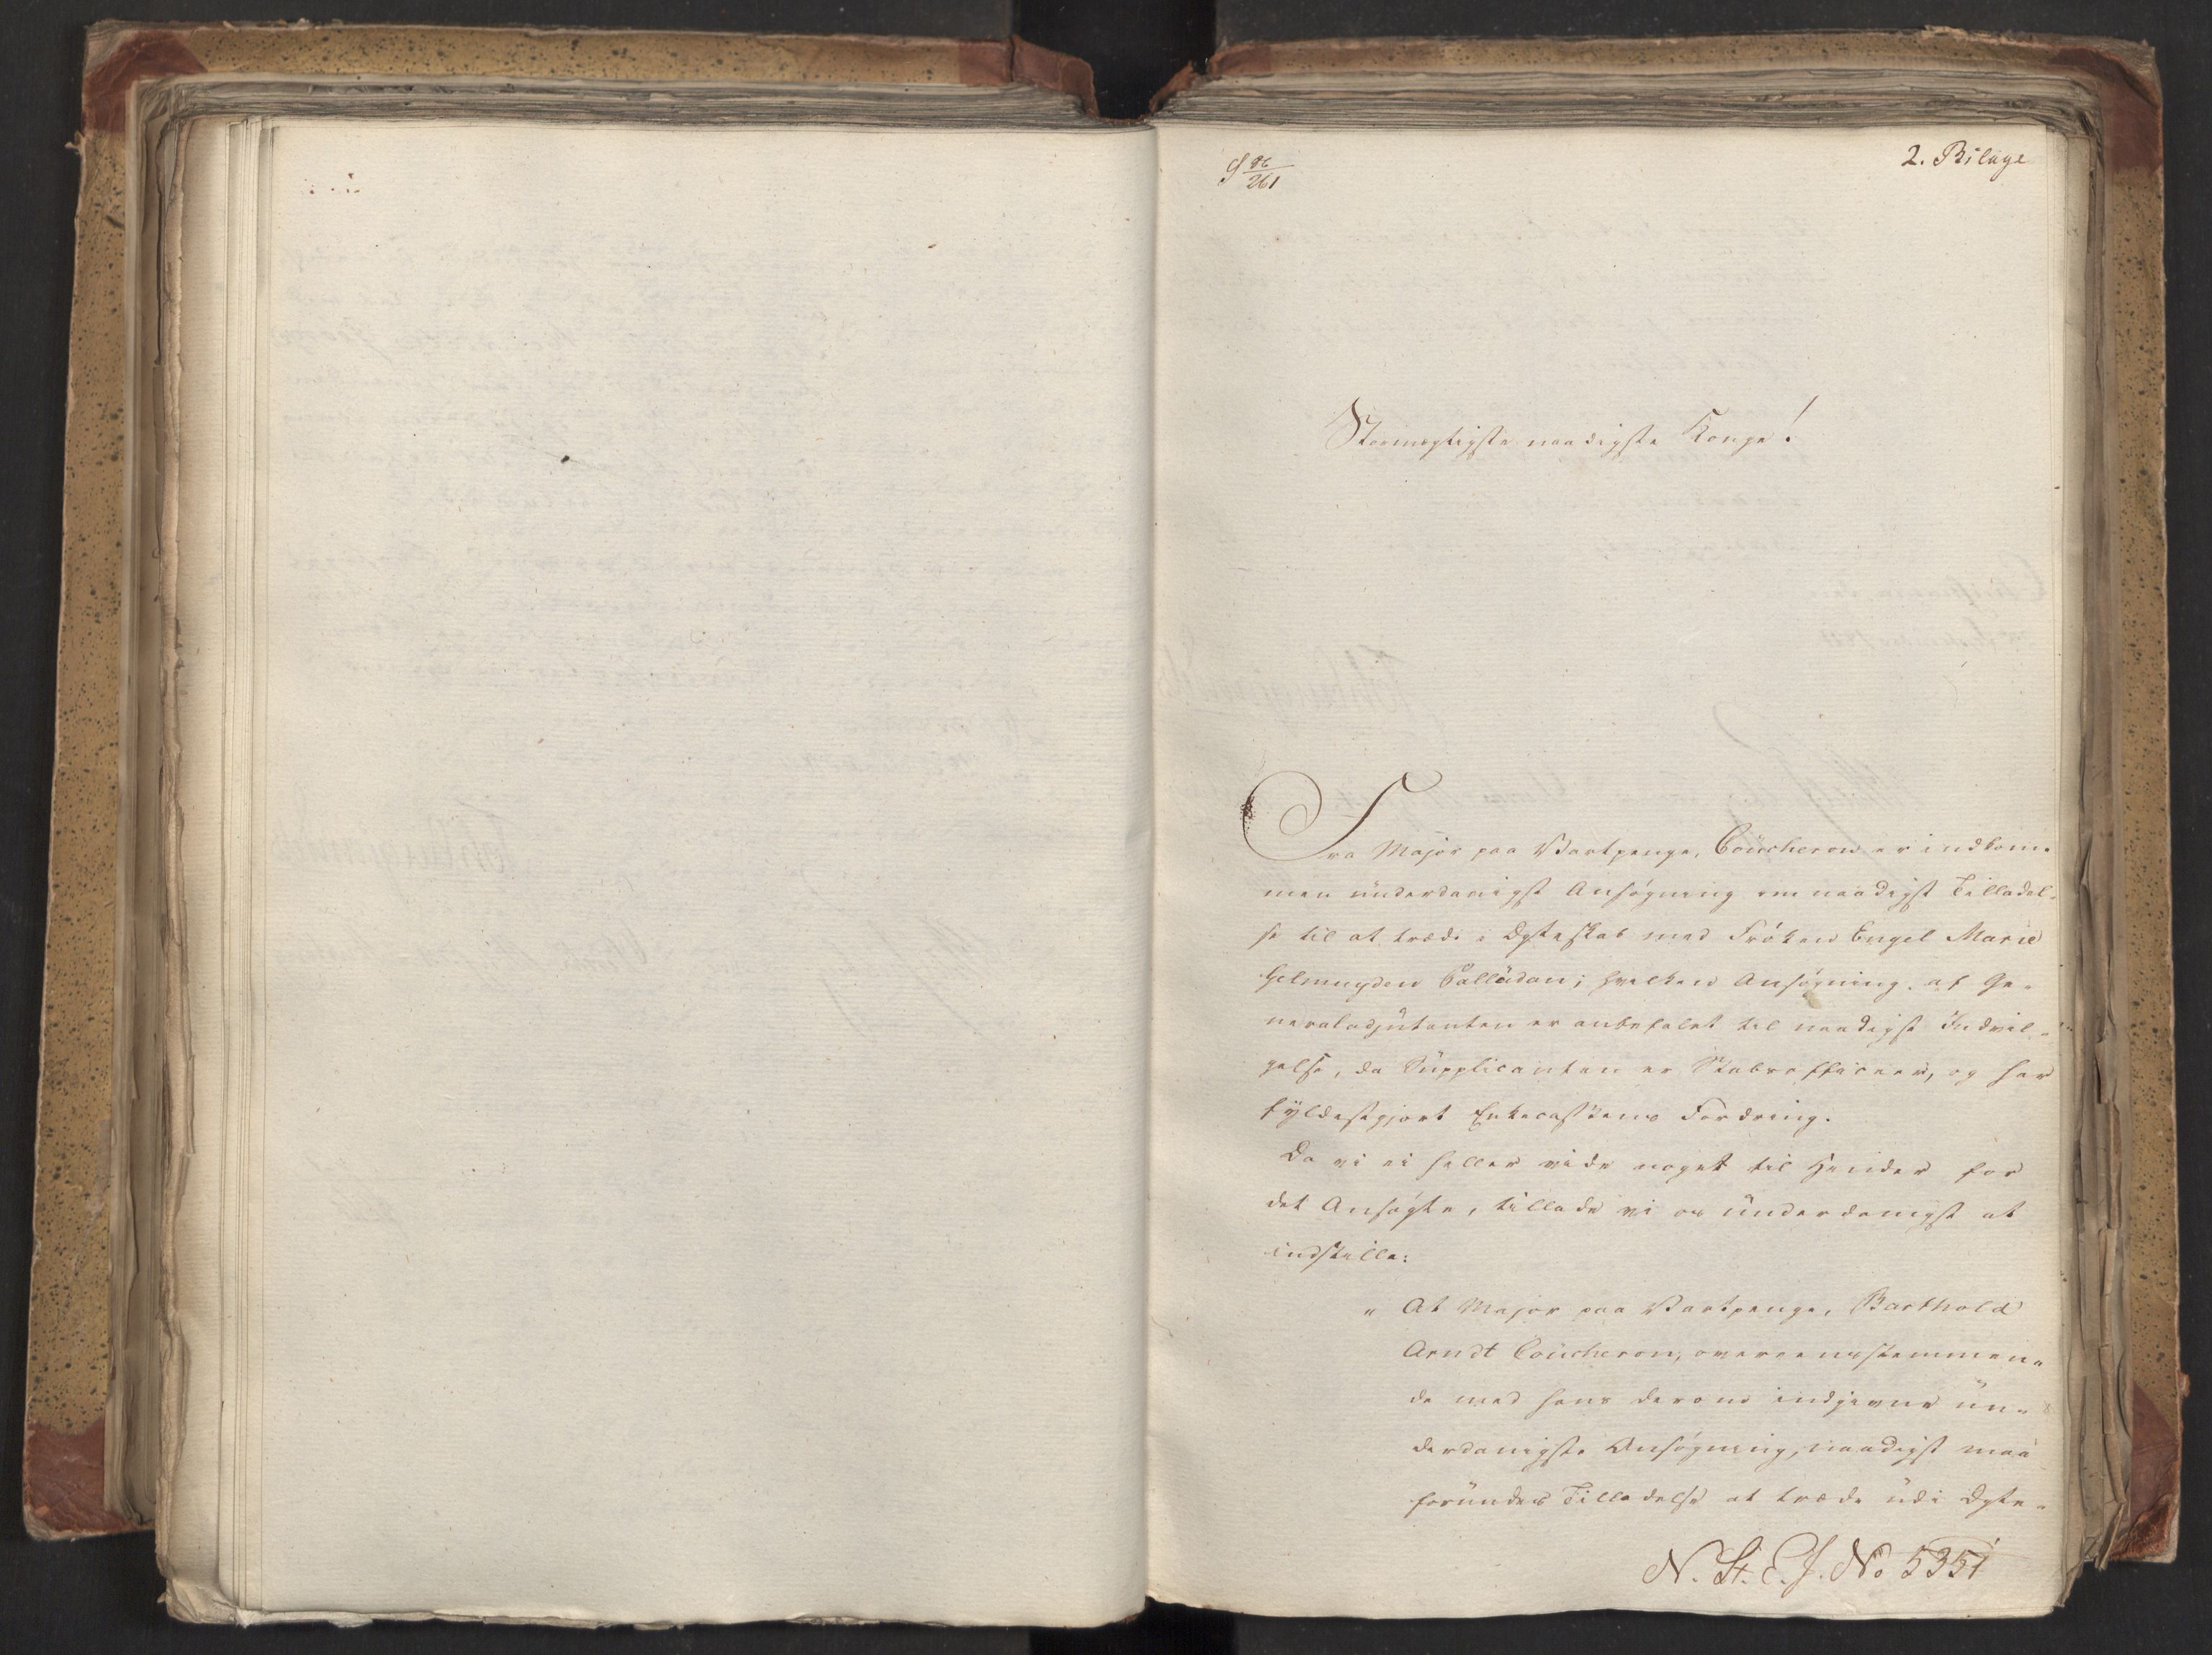 2. Bilage
261
Stormægtigste naadigste Konge!
Fra Major paa Vartpenge, Coucheron er indkom-
men underdanigst Ansøgning om naadigst Tilladel-
se til at træde i Ægteskab med Frøken Engel Marie
Gelmuyden Calludan; hvilken Ansøgning af Ge-
neraladjutanten er anbefalet til naadigst Indvil-
gelse, da Supplicanten er Stabsofficeer, og har
fyldestgjort Enkecassens Fordring.
Da vi ei heller vide noget til Hinder for
det Ansøgte, tillade vi os underdanigst at
indstille:
" At Major paa Vartpenge, Barthold
Arndt Coucheron, overeensstemmen-
de med hans derom indgivne un-
derdanigste Ansøgning, naadigst maa
forundes Tilladelse at træde udi Ægte-
N. St. E. J. No 5351